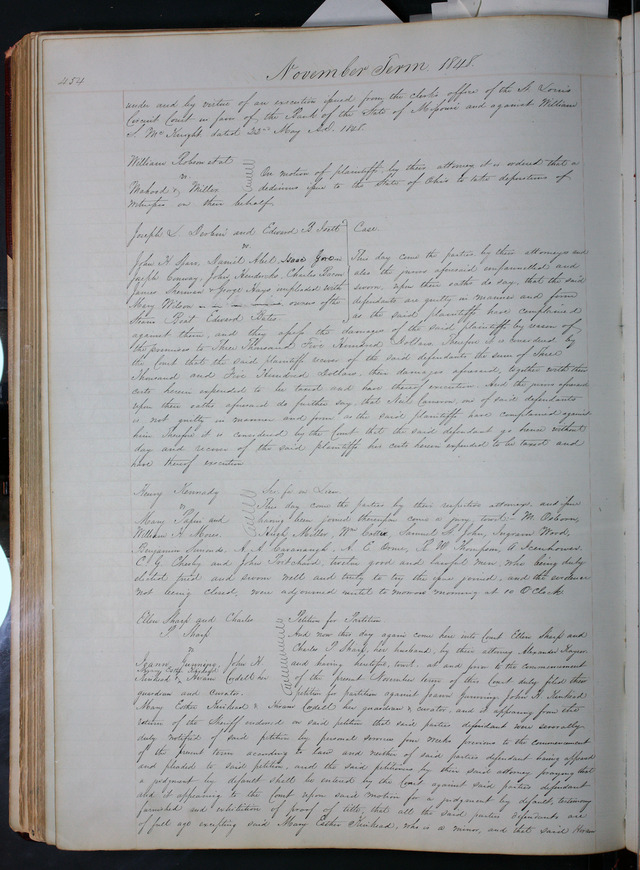 454
November Term 1848.
under and by virtue of an execution issued from the clerks office of the St Louis
Circuit Court in favor of the Bank of the State of Missouri and against William
S. McKnight dated 23rd May AD. 1848
William Robem et al
vs
Mahood & Miller
On motion of plaintiff by their attorney it is ordered that a
dedimus issue to the State of Ohio to take depositions of
witnesses on their behalf
Joseph S. and Edward B
vs
John H Spur, Daniel Abel, Isaac
Joseph Conway, John Hendricks, Charles
James Sherman & George Hays impleaded with
Mary Wilson owners of the
Steam Boat Edward Bates
Case.
This day come the parties by their attorneys and
also the jurors aforesaid empannelled and
sworn, upon their oaths do say, that the said
defendants are guilty in manner and form
as the said plaintiffs have complained
against them, and they assess the damages of the said plaintiff by reason of
the premises to Three Thousand Five Hundred Dollars. Therefore it is considered by
the Court that the said plaintiffs recover of the said defendants the sum of Three
Thousand and Five Hundred Dollars, their damages aforesaid, together with their
costs herein expended to be taxed and have thereof execution. And the jurors aforesaid
upon their oaths aforesaid do further say, that Neil Cameron, one of said defendants
is not guilty in manner and form as the said plaintiffs have complained against
him Therefore it is considered by the Court that the said defendant go hence without
day and recover of the said plaintiffs his costs herein expended to be taxed and
have thereof execution
Henry Kennedy
vs
Mary Papin and
William A.
Sci. fa on Lien.
This day come the parties by their respective attorneys, and issue
having been joined thereupon come a jury, towit:- M. Osborn,
Hugh Miller, Wm Collis, Samuel St John, Ingram Wood,
Benjamin Simonds, A. A. Cavanaugh, A. E. Orme, R. H. Thompson, A. Isenhower
C. G. Chesby and John Pritchard, twelve good and lawful men, who being duly
elected tried and sworn well and truly to try the issue joined, and the evidence
not being closed, were adjourned until to morrow morning at 10 O'Clock
Ellen Sharp and Charles
P. Sharp
vs
Jeanne Gunning, John H.
Kinkead, Mary Esther Kinkead & Hiram Cordell her
guardian and curator.
Petition for Partition
And now this day again come here into Court Ellen Sharp and
Charles P. Sharp, her husband, by their attorney Alexander Kayser
and having heretofore, towit: at and prior to the commencement
of the present November term of this Court duly filed their
petition for partition against Jeanne Gunning, John H. Kinkead
Mary Esther Kinkead & Hiram Cordell her guardian & curator, and it appearing from the
return of the Sheriff endorsed on said petition that said parties defendant were severally
duly notified of said petition by personal service four weeks previous to the commencement
of the present term according to law and neither of said parties defendant having appeared
and pleaded to said petition, and the said petitioners by their said attorney praying that
a judgment by default shall be entered by the Court against said parties defendant
and it appearing to the Court upon said motion for a judgment by default, testimony
furnished and exhibition of proof of title, that all the said parties defendants are
of full age excepting said Mary Esther Kinkead, who is a minor, and that said Hiram